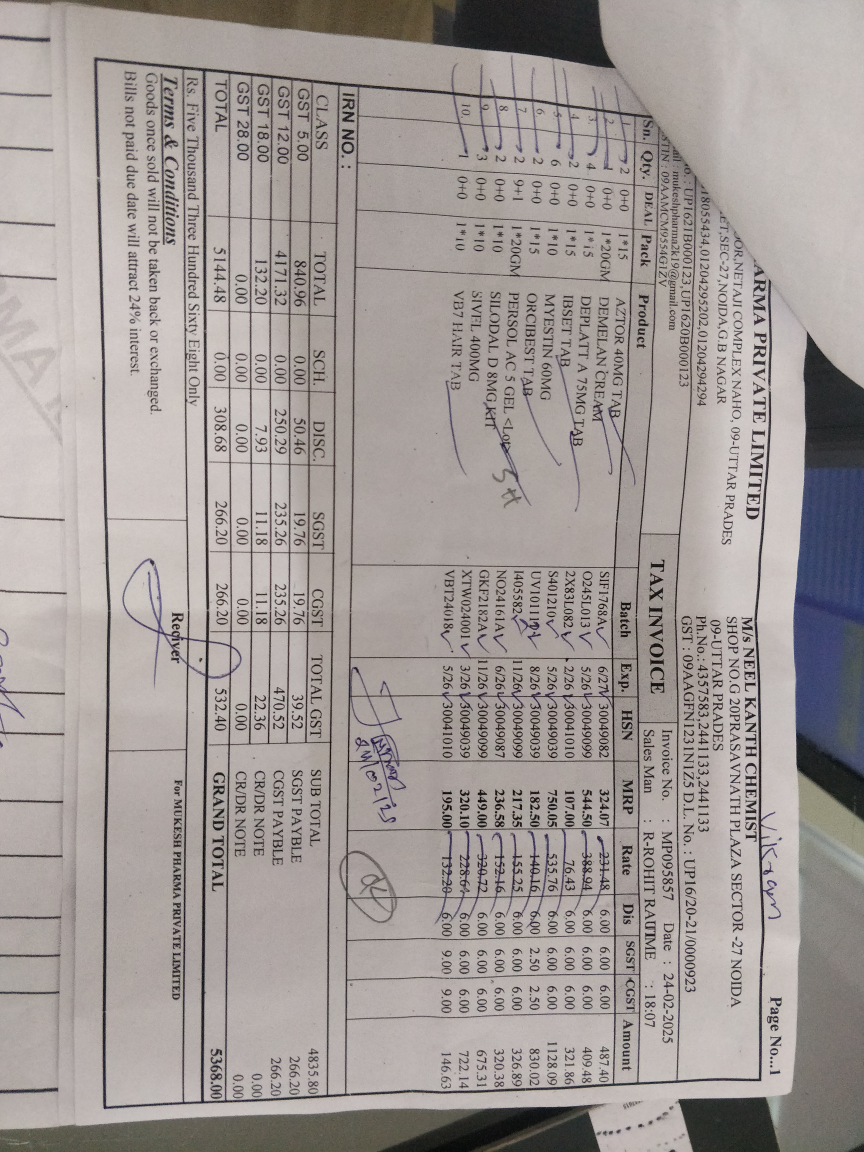 ARMA PRIVATE LIMITED
OOR,NETAJI COMPLEX NAHO, 09-UTTAR PRADES
ET,SEC-27,NOIDA,G.B NAGAR
18055434,01204295202,01204294294
o. : UP1621B000123,UP1620B000123
ail : mukeshpharma2k19@gmail.com
STIN : 09AAMCM9554G1ZV
Page No...1
Vikram
M/s NEEL KANTH CHEMIST
SHOP NO.G 20PRASAVNATH PLAZA SECTOR -27 NOIDA
09-UTTAR PRADES
Ph.No.: 4357583,2441133,2441133
GST : 09AAGFN1231N1Z5 D.L. No. : UP16/20-21/0000923
TAX INVOICE
Invoice No. : MP095857 Date : 24-02-2025
Sales Man : R-ROHIT RAUTIME : 18:07
Sn. Qty. DEAL Pack Product Batch Exp. HSN MRP Rate Dis SGST CGST Amount
1. 2 0+0 1*15 AZTOR 40MG TAB SIF1768A 6/27 30049082 324.07 231.48 6.00 6.00 6.00 487.40
2. 1 0+0 1*20GM DEMELAN CREAM O245L013 5/26 30049099 544.50 388.94 6.00 6.00 6.00 409.48
3. 4 0+0 1*15 DEPLATT A 75MG TAB 2X83L082 2/26 30041010 107.00 76.43 6.00 6.00 6.00 321.86
4. 2 0+0 1*15 IBSET TAB S401210 5/26 30049039 750.05 535.76 6.00 6.00 6.00 1128.09
5. 6 0+0 1*10 MYESTIN 60MG 8/26 30049039 182.50 140.16 6.00 2.50 2.50 830.02
6. 2 0+0 1*15 ORCIBEST TAB I405582 11/26 30049099 217.35 155.25 6.00 6.00 6.00 326.89
7. 2 9+1 1*20GM PERSOL AC 5 GEL <Lop NO24161A 6/26 30049087 236.58 152.16 6.00 6.00 6.00 320.38
8. 2 0+0 1*10 SILODAL D 8MG KIT GKF2182A 11/26 30049099 449.00 320.72 6.00 6.00 6.00 675.31
9. 3 0+0 1*10 SIVEL 400MG XTW024001 3/26 30049039 320.10 228.64 6.00 6.00 6.00 722.14
10. 1 0+0 1*10 VB7 HAIR TAB VBT24018 5/26 30041010 195.00 132.20 6.00 9.00 9.00 146.63
OK
IRN NO. :
CLASS TOTAL SCH. DISC. SGST CGST TOTAL GST
GST 5.00 840.96 0.00 50.46 19.76 19.76 39.52
GST 12.00 4171.32 0.00 250.29 235.26 235.26 470.52
GST 18.00 132.20 0.00 7.93 11.18 11.18 22.36
GST 28.00 0.00 0.00 0.00 0.00 0.00 0.00
TOTAL 5144.48 0.00 308.68 266.20 266.20 532.40
SUB TOTAL 4835.80
SGST PAYBLE 266.20
CGST PAYBLE 266.20
CR/DR NOTE 0.00
CR/DR NOTE 0.00
GRAND TOTAL 5368.00
Rs. Five Thousand Three Hundred Sixty Eight Only
Terms & Conditions
Goods once sold will not be taken back or exchanged.
Bills not paid due date will attract 24% interest.
Reciver
For MUKESH PHARMA PRIVATE LIMITED